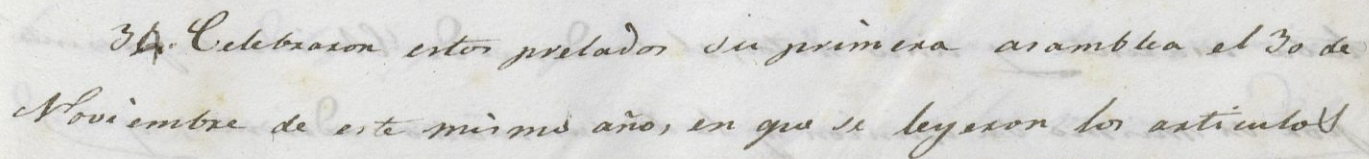 34. Celebraron estos prelados su primera asamblea el 30 de
Noviembre de este mismo año, en que se leyeron los articulos